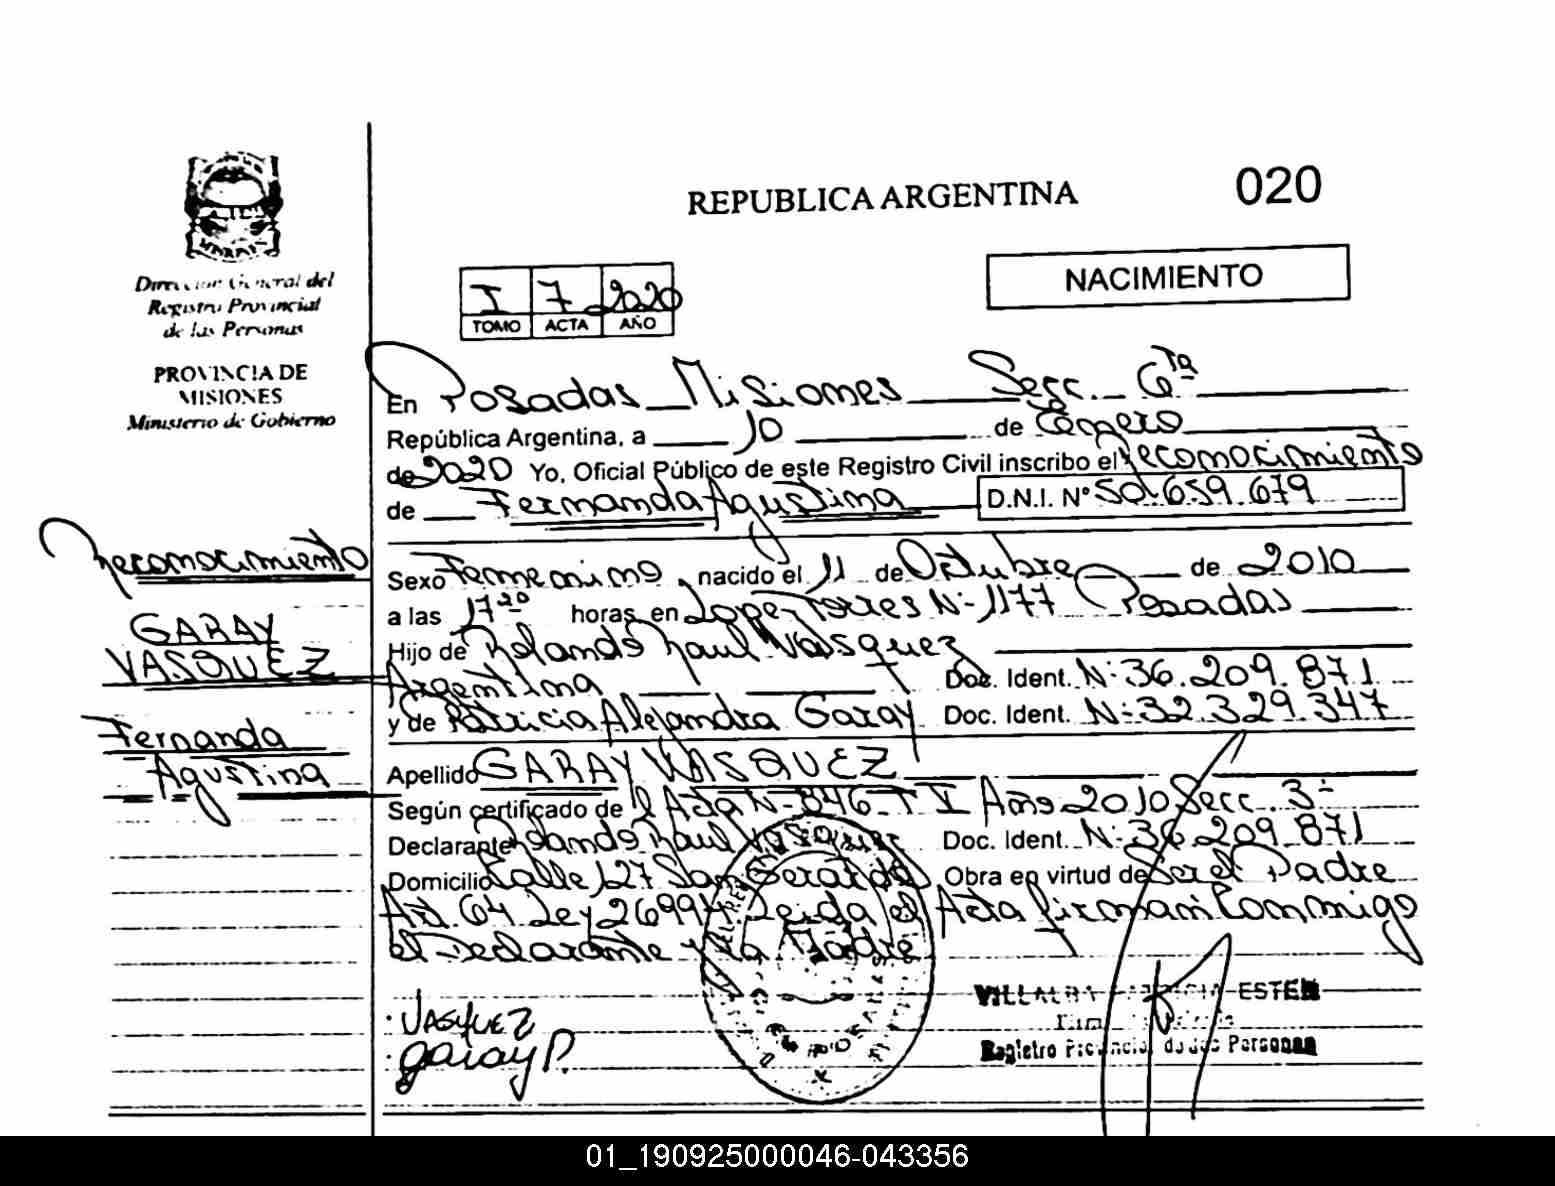 020
REPUBLICA ARGENTINA
NACIMIENTO
Dirección General del
Registro Provincial
de las Personas
PROVINCIA DE
MISIONES
Ministerio de Gobierno
I 7 2020
TOMO ACTA AÑO
En Posadas Misiones Secc. 6ta
República Argentina, a 10 de Enero
de 2020 Yo, Oficial Público de este Registro Civil inscribo el Reconocimiento
de Fernanda Agustina D.N.I. N° 50.659.679
Reconocimiento
GARAY
VASQUEZ
Fernanda
Agustina
Sexo Femenino, nacido el 11 de Octubre de 2010
a las 17 horas, en Lope Torres N° 1177 Posadas
Hijo de Rolando Raul Vasquez
Argentina Doc. Ident. N° 36.209.871
y de Patricia Alejandra Garay Doc. Ident. N° 32.329.347
Apellido GARAY VASQUEZ
Según certificado de Acta N° 846 T V Año 2010 Secc. 3°
Declarante Rolando Raul Vasquez Doc. Ident. N° 36.209.871
Domicilio Calle 127 San Gerardo Obra en virtud de Ser el Padre
Art. 64 Ley 26994 Leida el Acta firman Conmigo
el Declarante y la Madre
VASQUEZ
garay P.
VILLALBA ESTER
Registro Provincial de las Personas
01_190925000046-043356